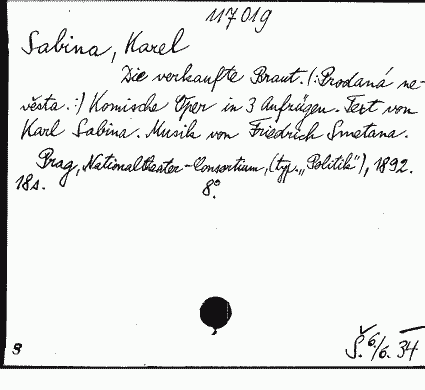 117019
Sabina, Karel
Die verkaufte Braut. (:Prodaná ne-
věsta.:) Komische Oper in 3 Aufzügen. Text von
Karl Sabina. Musik von Friedrich Smetana.
Prag, Nationaltheater-Consortium, (typ. „Politik"), 1892.
18s. 8°.
Š. 6/6. 34